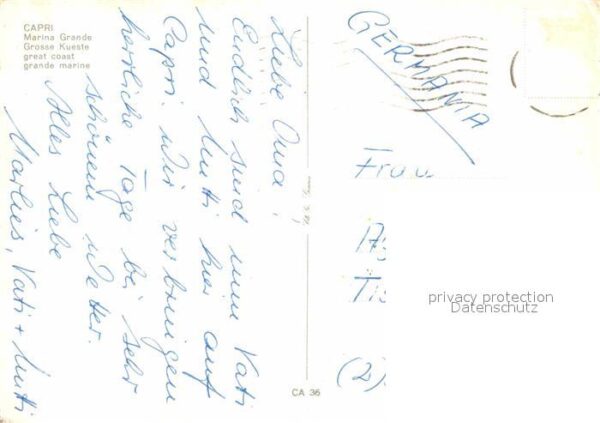 CAPRI
Marina Grande
Grosse Kueste
great coast
grande marine
Liebe Oma!
Endlich sind nun Vati
und Mutti hier auf
Capri. Wir verbringen
herrliche Tage bei sehr
schönem Wetter.
Alles Liebe
Marlies, Vati + Mutti
GERMANIA
Frau
(2)
privacy protection
Datenschutz
CA 36